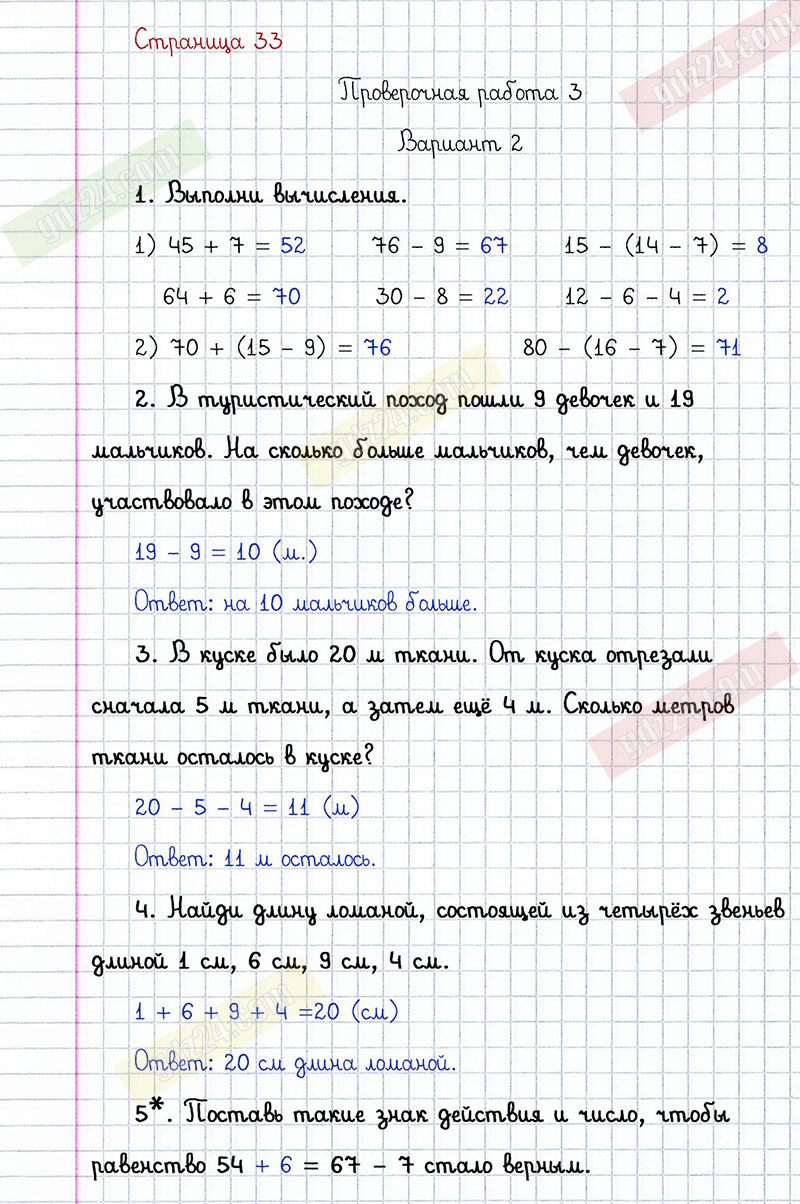 Страница 33
gdz24.com
Проверочная работа 3
Вариант 2
gdz24.com
1. Выполни вычисления.
1) 45 + 7 = 52 76 - 9 = 67 15 - (14 - 7) = 8
64 + 6 = 70 30 - 8 = 22 12 - 6 - 4 = 2
2) 70 + (15 - 9) = 76 80 - (16 - 7) = 71
gdz24.com
2. В туристический поход пошли 9 девочек и 19
мальчиков. На сколько больше мальчиков, чем девочек,
участвовало в этом походе?
19 - 9 = 10 (м.)
Ответ: на 10 мальчиков больше.
3. В куске было 20 м ткани. От куска отрезали
сначала 5 м ткани, а затем ещё 4 м. Сколько метров
gdz24.com
ткани осталось в куске?
20 - 5 - 4 = 11 (м)
Ответ: 11 м осталось.
4. Найди длину ломаной, состоящей из четырёх звеньев
длиной 1 см, 6 см, 9 см, 4 см.
1 + 6 + 9 + 4 =20 (см)
gdz24.com
Ответ: 20 см длина ломаной.
5*. Поставь такие знак действия и число, чтобы
равенство 54 + 6 = 67 - 7 стало верным.